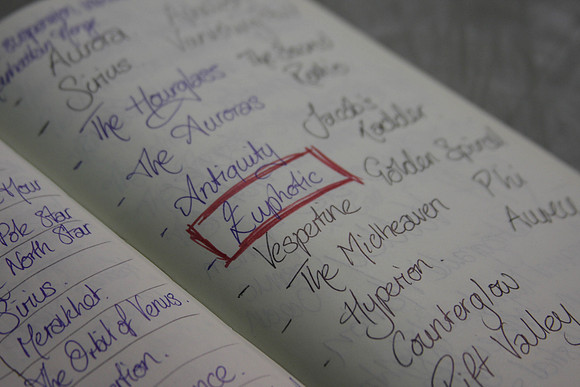 Aurora
Sirius
The Hourglass
The Auroras
Antiquity
Euphotic
Vespertine
The Midheaven
Hyperion.
Counterglow
Rift Valley
The
Jacob's
Ladder
Golden Spiral
Phi
Pole Star
North Star
Sirius.
Merakhet.
The Orbit of Venus.